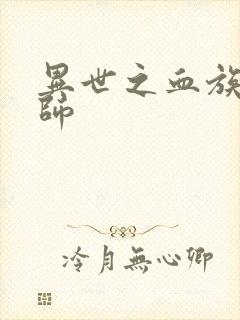 異世之血族
師
冷月無心卿